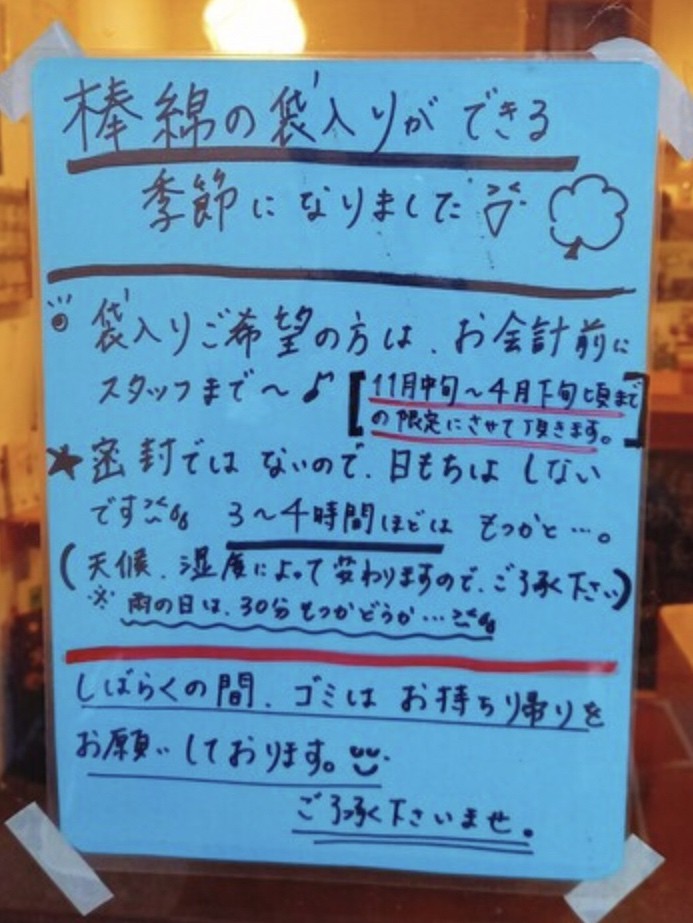 棒綿の袋入りができる
季節になりました
袋入りご希望の方は、お会計前に
スタッフまで〜♪ [11月中旬〜4月下旬頃まで
の限定にさせて頂きます。]
★密封ではないので、日もちはしない
です 3〜4時間ほどは もつかと…。
(天候、湿度によって変わりますので、ご了承下さい)
※雨の日は、30分もつかどうか…
しばらくの間、ゴミはお持ち帰りを
お願いしております。
ご了承下さいませ。